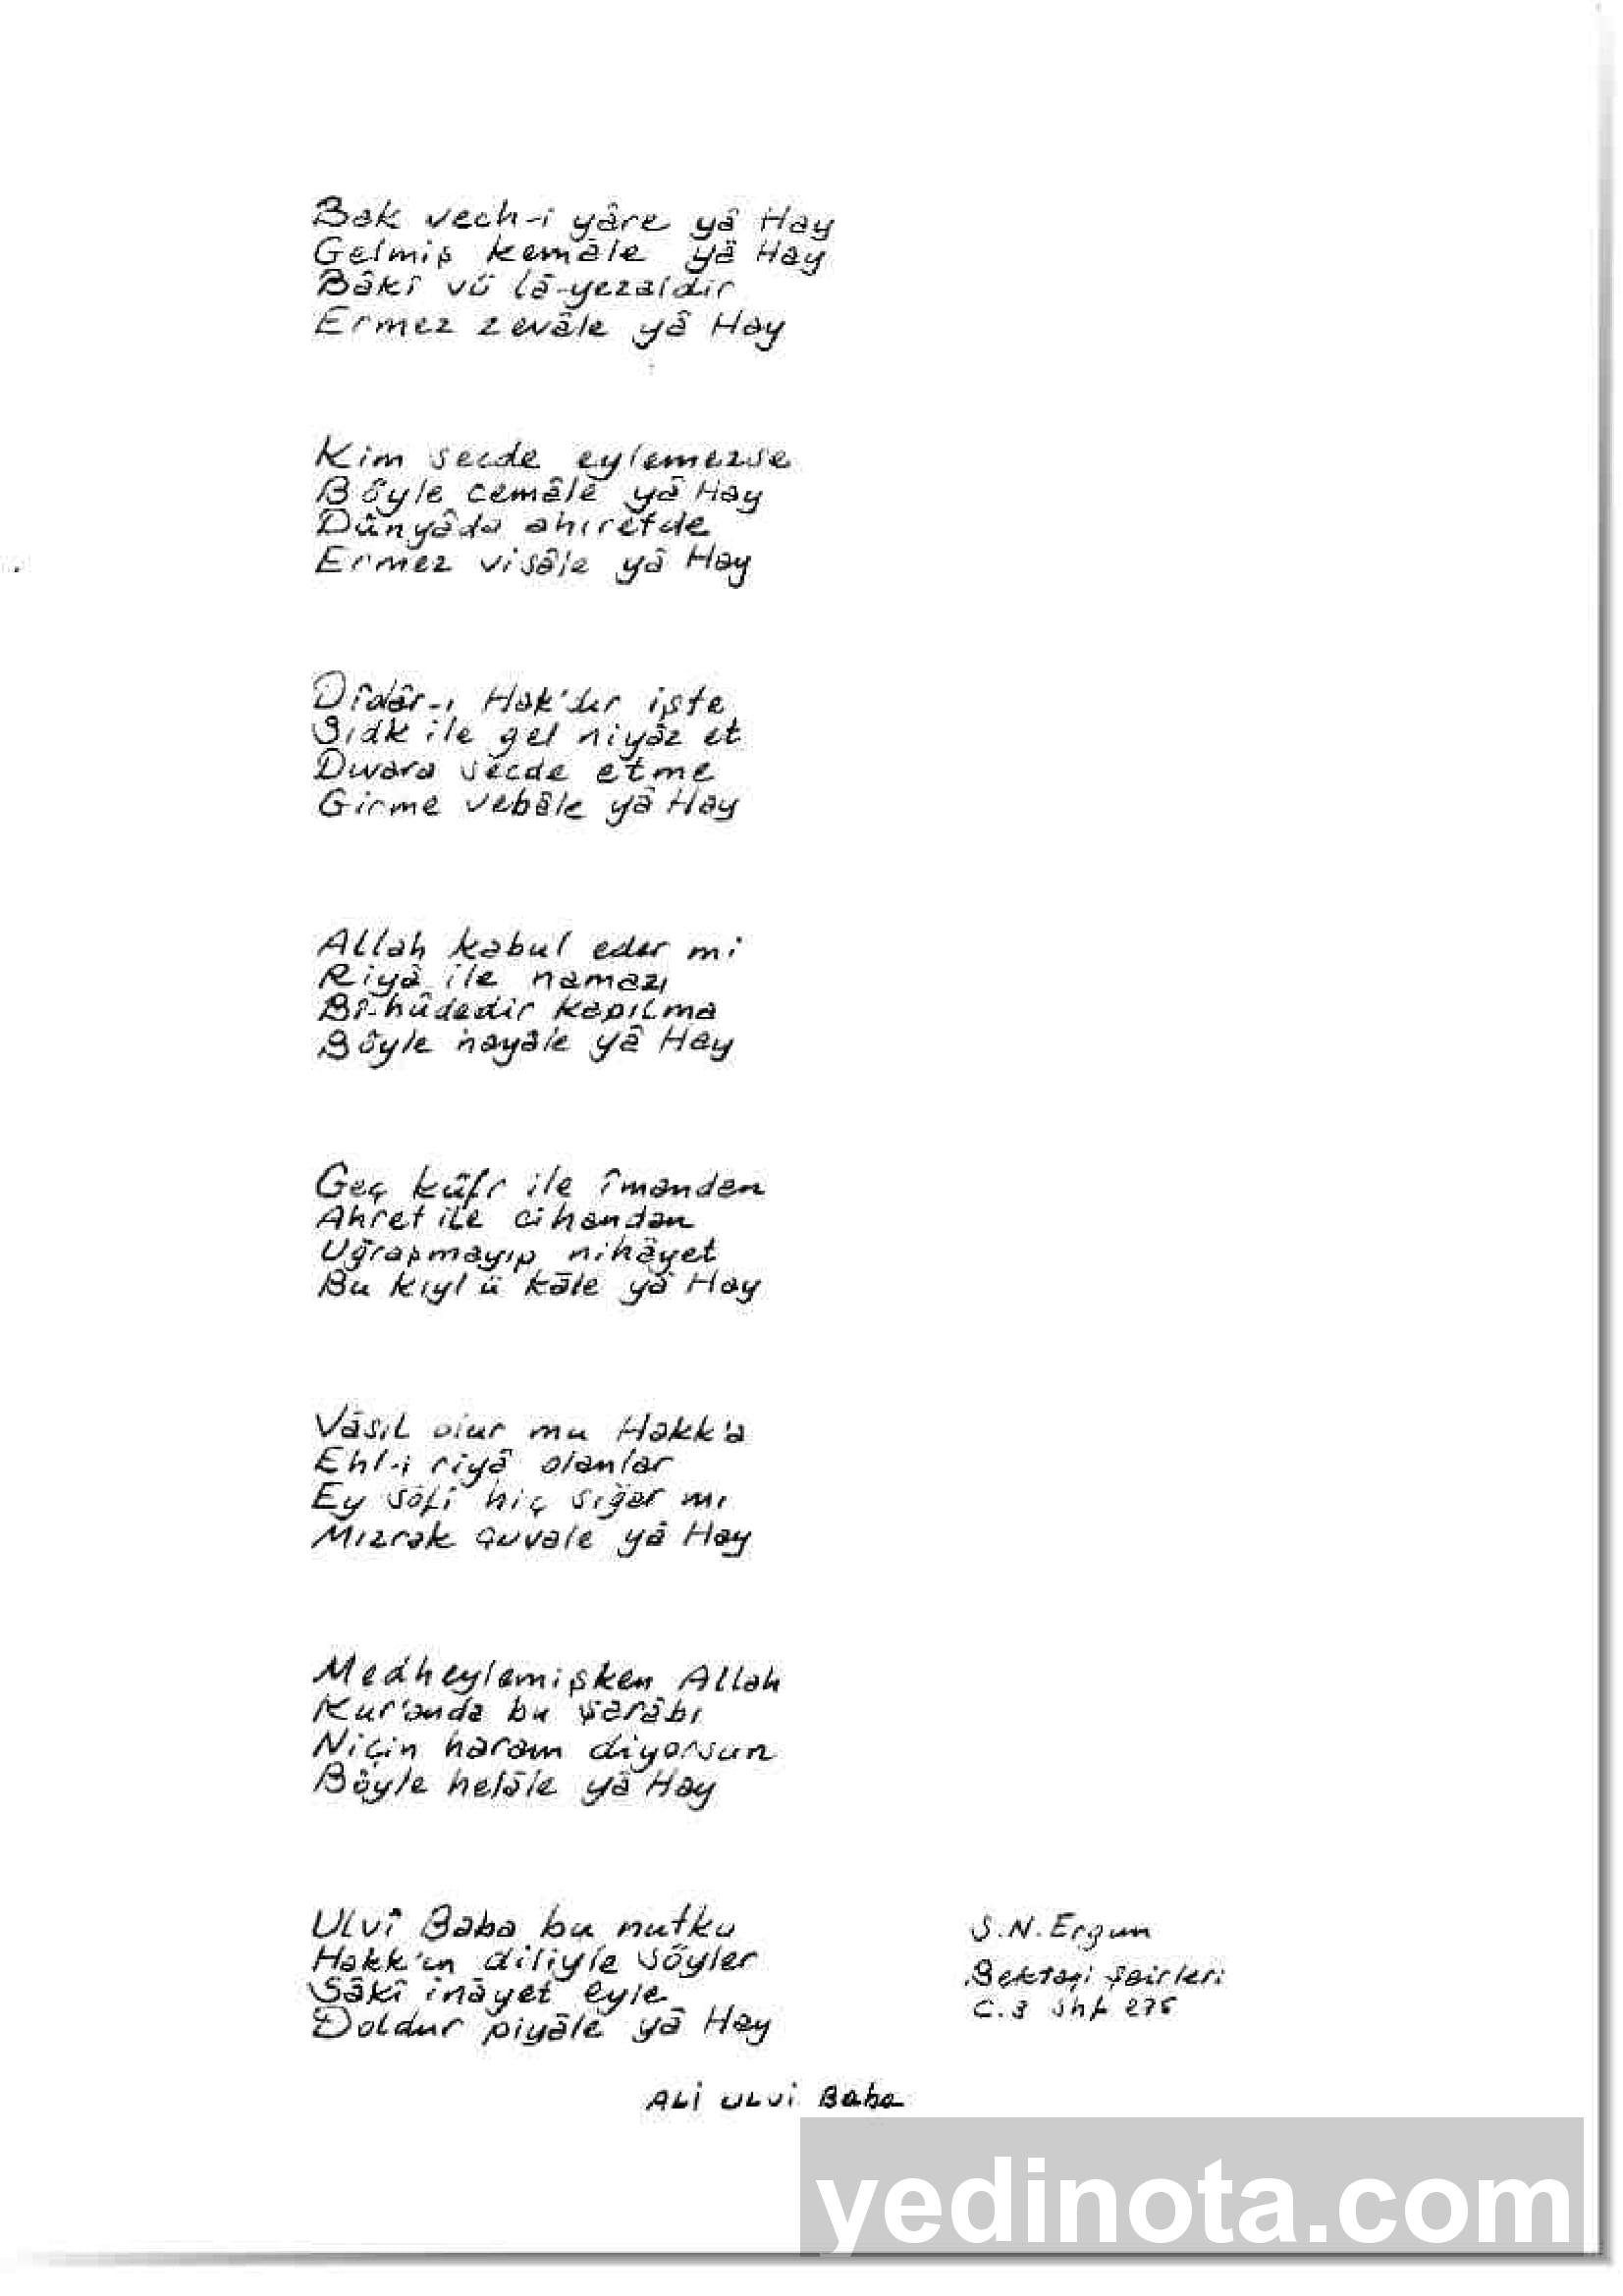 Bak vech-i yâre yâ Hay
Gelmiş kemâle yâ Hay
Bâkî vü lâ-yezaldir
Ermez zevâle yâ Hay
Kim secde eylemezse
Böyle cemâle yâ Hay
Dünyâda ahıretde
Ermez visâle yâ Hay
Dîdâr-ı Hak'dır işte
Sıdk ile gel niyâz et
Dıvara secde etme
Girme vebâle yâ Hay
Allah kabul eder mi
Riyâ ile namazı
Bî-hûdedir kapılma
Böyle hayâle yâ Hay
Geç küfr ile îmandan
Ahret ile cihandan
Uğraşmayıp nihâyet
Bu kıyl ü kâle yâ Hay
Vâsıl olur mu Hakk'a
Ehl-i riyâ olanlar
Ey sôfî hiç sığar mı
Mızrak çuvale yâ Hay
Medheylemişken Allah
Kur'anda bu şarâbı
Niçin haram diyorsun
Böyle helâle yâ Hay
Ulvî Baba bu nutku
Hakk'ın diliyle söyler
Sâkî inâyet eyle
Doldur piyâle yâ Hay
S.N. Ergun
Bektaşi Şairleri
C.3 Shf 275
Ali Ulvi Baba
yedinota.com